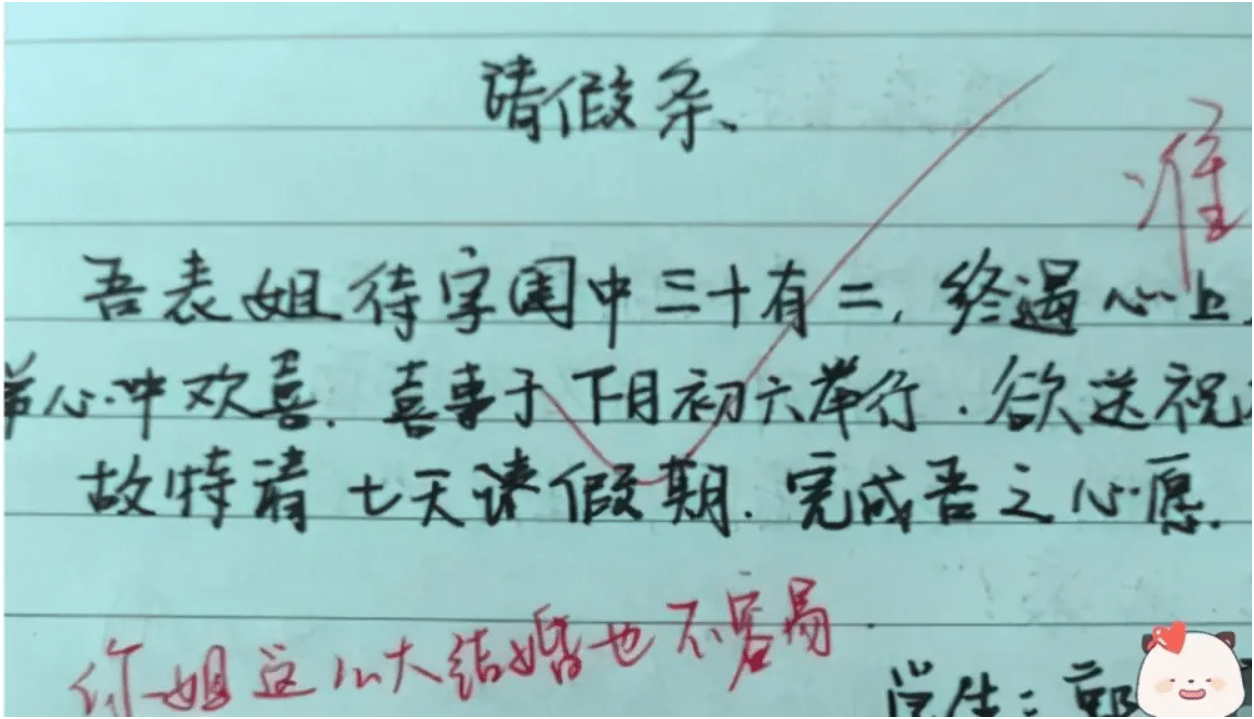 请假条
准
吾表姐待字闺中三十有二，终遇心上
心中欢喜．喜事于下月初六举行．欲送祝
故特请七天请假期．完成吾之心愿．
你姐这么大结婚也不容易
学生：郭